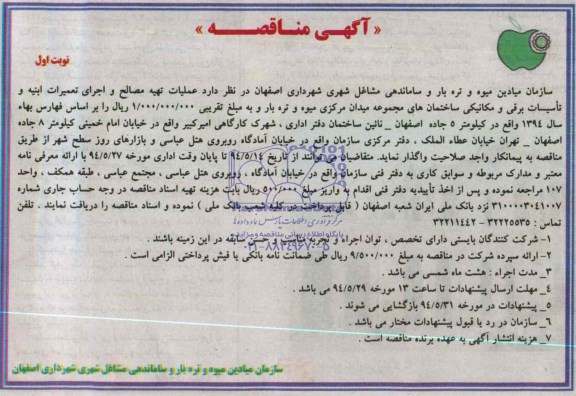 « آگهی مناقصه »
نوبت اول
سازمان میادین میوه و تره بار و ساماندهی مشاغل شهری شهرداری اصفهان در نظر دارد عملیات تهیه مصالح و اجرای تعمیرات ابنیه و
تأسیسات برقی و مکانیکی ساختمان های مجموعه میدان مرکزی میوه و تره بار و به مبلغ تقریبی ۱/۰۰۰/۰۰۰/۰۰۰ ریال را بر اساس فهارس بهاء
سال ۱۳۹۴ واقع در کیلومتر ۵ جاده اصفهان _ نائین ساختمان دفتر اداری ، شهرک کارگاهی امیرکبیر واقع در خیابان امام خمینی کیلومتر ۸ جاده
اصفهان _ تهران خیابان عطاء الملک ، دفتر مرکزی سازمان واقع در خیابان آمادگاه روبروی هتل عباسی و بازارهای روز سطح شهر از طریق
مناقصه به پیمانکار واجد صلاحیت واگذار نماید. متقاضیان می توانند از تاریخ ۹۴/۵/۱۴ تا پایان وقت اداری مورخه ۹۴/۵/۲۷ با ارائه معرفی نامه
معتبر و مدارک مربوطه و سوابق کاری به دفتر فنی سازمان واقع در خیابان آمادگاه ، روبروی هتل عباسی ، مجتمع عباسی ، طبقه همکف ، واحد
۱۰۷ مراجعه نموده و پس از اخذ تأییدیه دفتر فنی اقدام به واریز مبلغ ۵۰۰/۰۰۰ ریال بابت هزینه تهیه اسناد مناقصه در وجه حساب جاری شماره
۳۱۰۰۰۰۳۰۴۱۰۰۷ نزد بانک ملی ایران شعبه اصفهان ( قابل پرداخت در کلیه شعب بانک ملی ) نموده و اسناد مناقصه را دریافت نمایند . تلفن
تماس : ۳۲۲۲۵۵۳۵ – ۳۲۲۱۱۴۴۲
۱– شرکت کنندگان بایستی دارای تخصص ، توان اجراء و تجربه مناسب و حسن سابقه در این زمینه باشند .
۲– ارائه سپرده شرکت در مناقصه به مبلغ ۹/۵۰۰/۰۰۰ ریال طی ضمانت نامه بانکی یا فیش پرداختی الزامی است .
۳_ مدت اجراء : هشت ماه شمسی می باشد .
۴_ مهلت ارسال پیشنهادات تا ساعت ۱۳ مورخه ۹۴/۵/۲۹ می باشد .
۵_ پیشنهادات در مورخه ۹۴/۵/۳۱ بازگشایی می شوند .
۶_ سازمان در رد یا قبول پیشنهادات مختار می باشد .
۷_ هزینه انتشار آگهی به عهده برنده مناقصه است .
سازمان میادین میوه و تره بار و ساماندهی مشاغل شهری شهرداری اصفهان
پایگاه اطلاع رسانی مناقصه و مزایده
۰۲۱-۸۸۳۴۹۶۷۰-۵